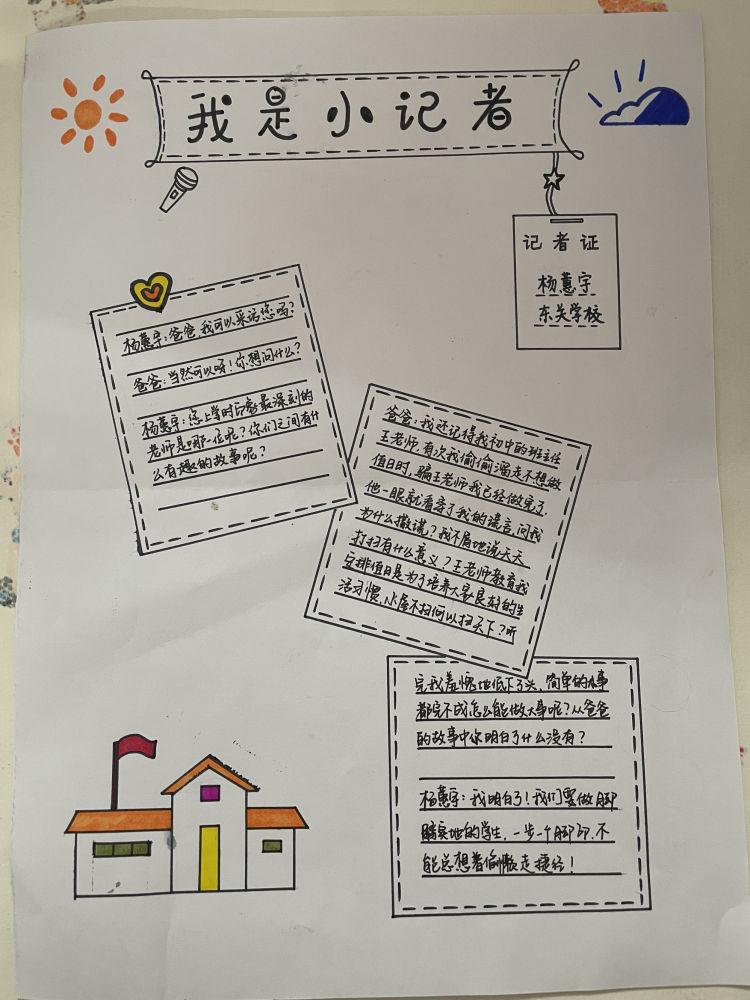 我是小记者
记者证
杨蕙宇
东关学校
杨蕙宇：爸爸，我可以采访您吗？
爸爸：当然可以呀！你想问什么？
杨蕙宇：您上学时印象最深刻的
老师是哪一位呢？你们之间有什
么有趣的故事呢？
爸爸：我还记得我初中的班主任
王老师，有次我偷偷溜走不想做
值日时，骗王老师我已经做完了，
他一眼就看穿了我的谎言，问我
为什么撒谎？我不屑地说天天
打扫有什么意义？王老师教育我
安排值日是为了培养大家良好的生
活习惯，小屋不扫何以扫天下？听
完我羞愧地低下了头，简单的小事
都完不成怎么能做大事呢？从爸爸
的故事中你明白了什么没有？
杨蕙宇：我明白了！我们要做脚
踏实地的学生，一步一个脚印，不
能总想着偷懒走捷径！